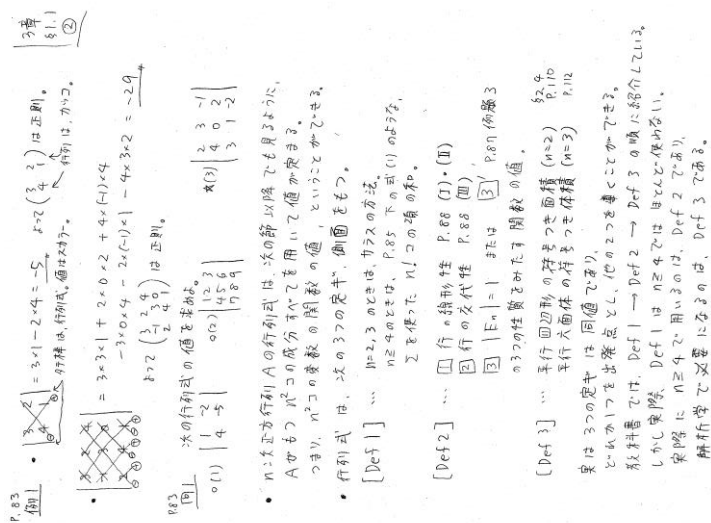 3章
§1.1
②
P.83
例1
・ | 3 2 / 4 1 | = 3×1 − 2×4 = −5 よって ( 3 2 / 4 1 ) は正則。
タテ棒は、行列式。値はスカラー。 行列は、カッコ。
= 3×3×1 + 2×0×2 + 4×(-1)×4
− 3×0×4 − 2×(-1)×1 − 4×3×2 = −29
は正則。
P.83
問1
次の行列式の値を求めよ。
o(1) | 1 -2 / 4 -5 | o(2) | 1 2 3 / 4 5 6 / 7 8 9 | *(3) | 2 3 -1 / 4 0 2 / 3 1 -2 |
・n次正方行列Aの行列式は、次の節以降でも見るように、
Aがもつ n²コの成分すべてを用いて値が定まる。
つまり、n²コの変数の関数の値、ということができる。
・行列式は、次の3つの定義、側面をもつ。
[Def 1] … n=2,3のときは、サラスの方法。
n≧4のときは、P.85 下の式(1)のような、
Σを使った n!コの項の和。
[Def 2] … 1 行の線形性 P.88 (I)・(II)
2 行の交代性 P.88 (III)
3 |En|=1 または 3' P.87 例題3
の3つの性質をみたす関数の値。
[Def 3] … 平行四辺形の符号つき面積 (n=2) §2.4 P.110
平行六面体の符号つき体積 (n=3) P.112
実は3つの定義は同値であり、
どれか1つを出発点とし、他の2つを導くことができる。
教科書では、Def 1 → Def 2 → Def 3 の順に紹介している。
しかし実際、Def 1 は n≧4 ではほとんど使わない。
実際に n≧4 で用いるのは、Def 2 であり、
解析学で必要になるのは、Def 3 である。